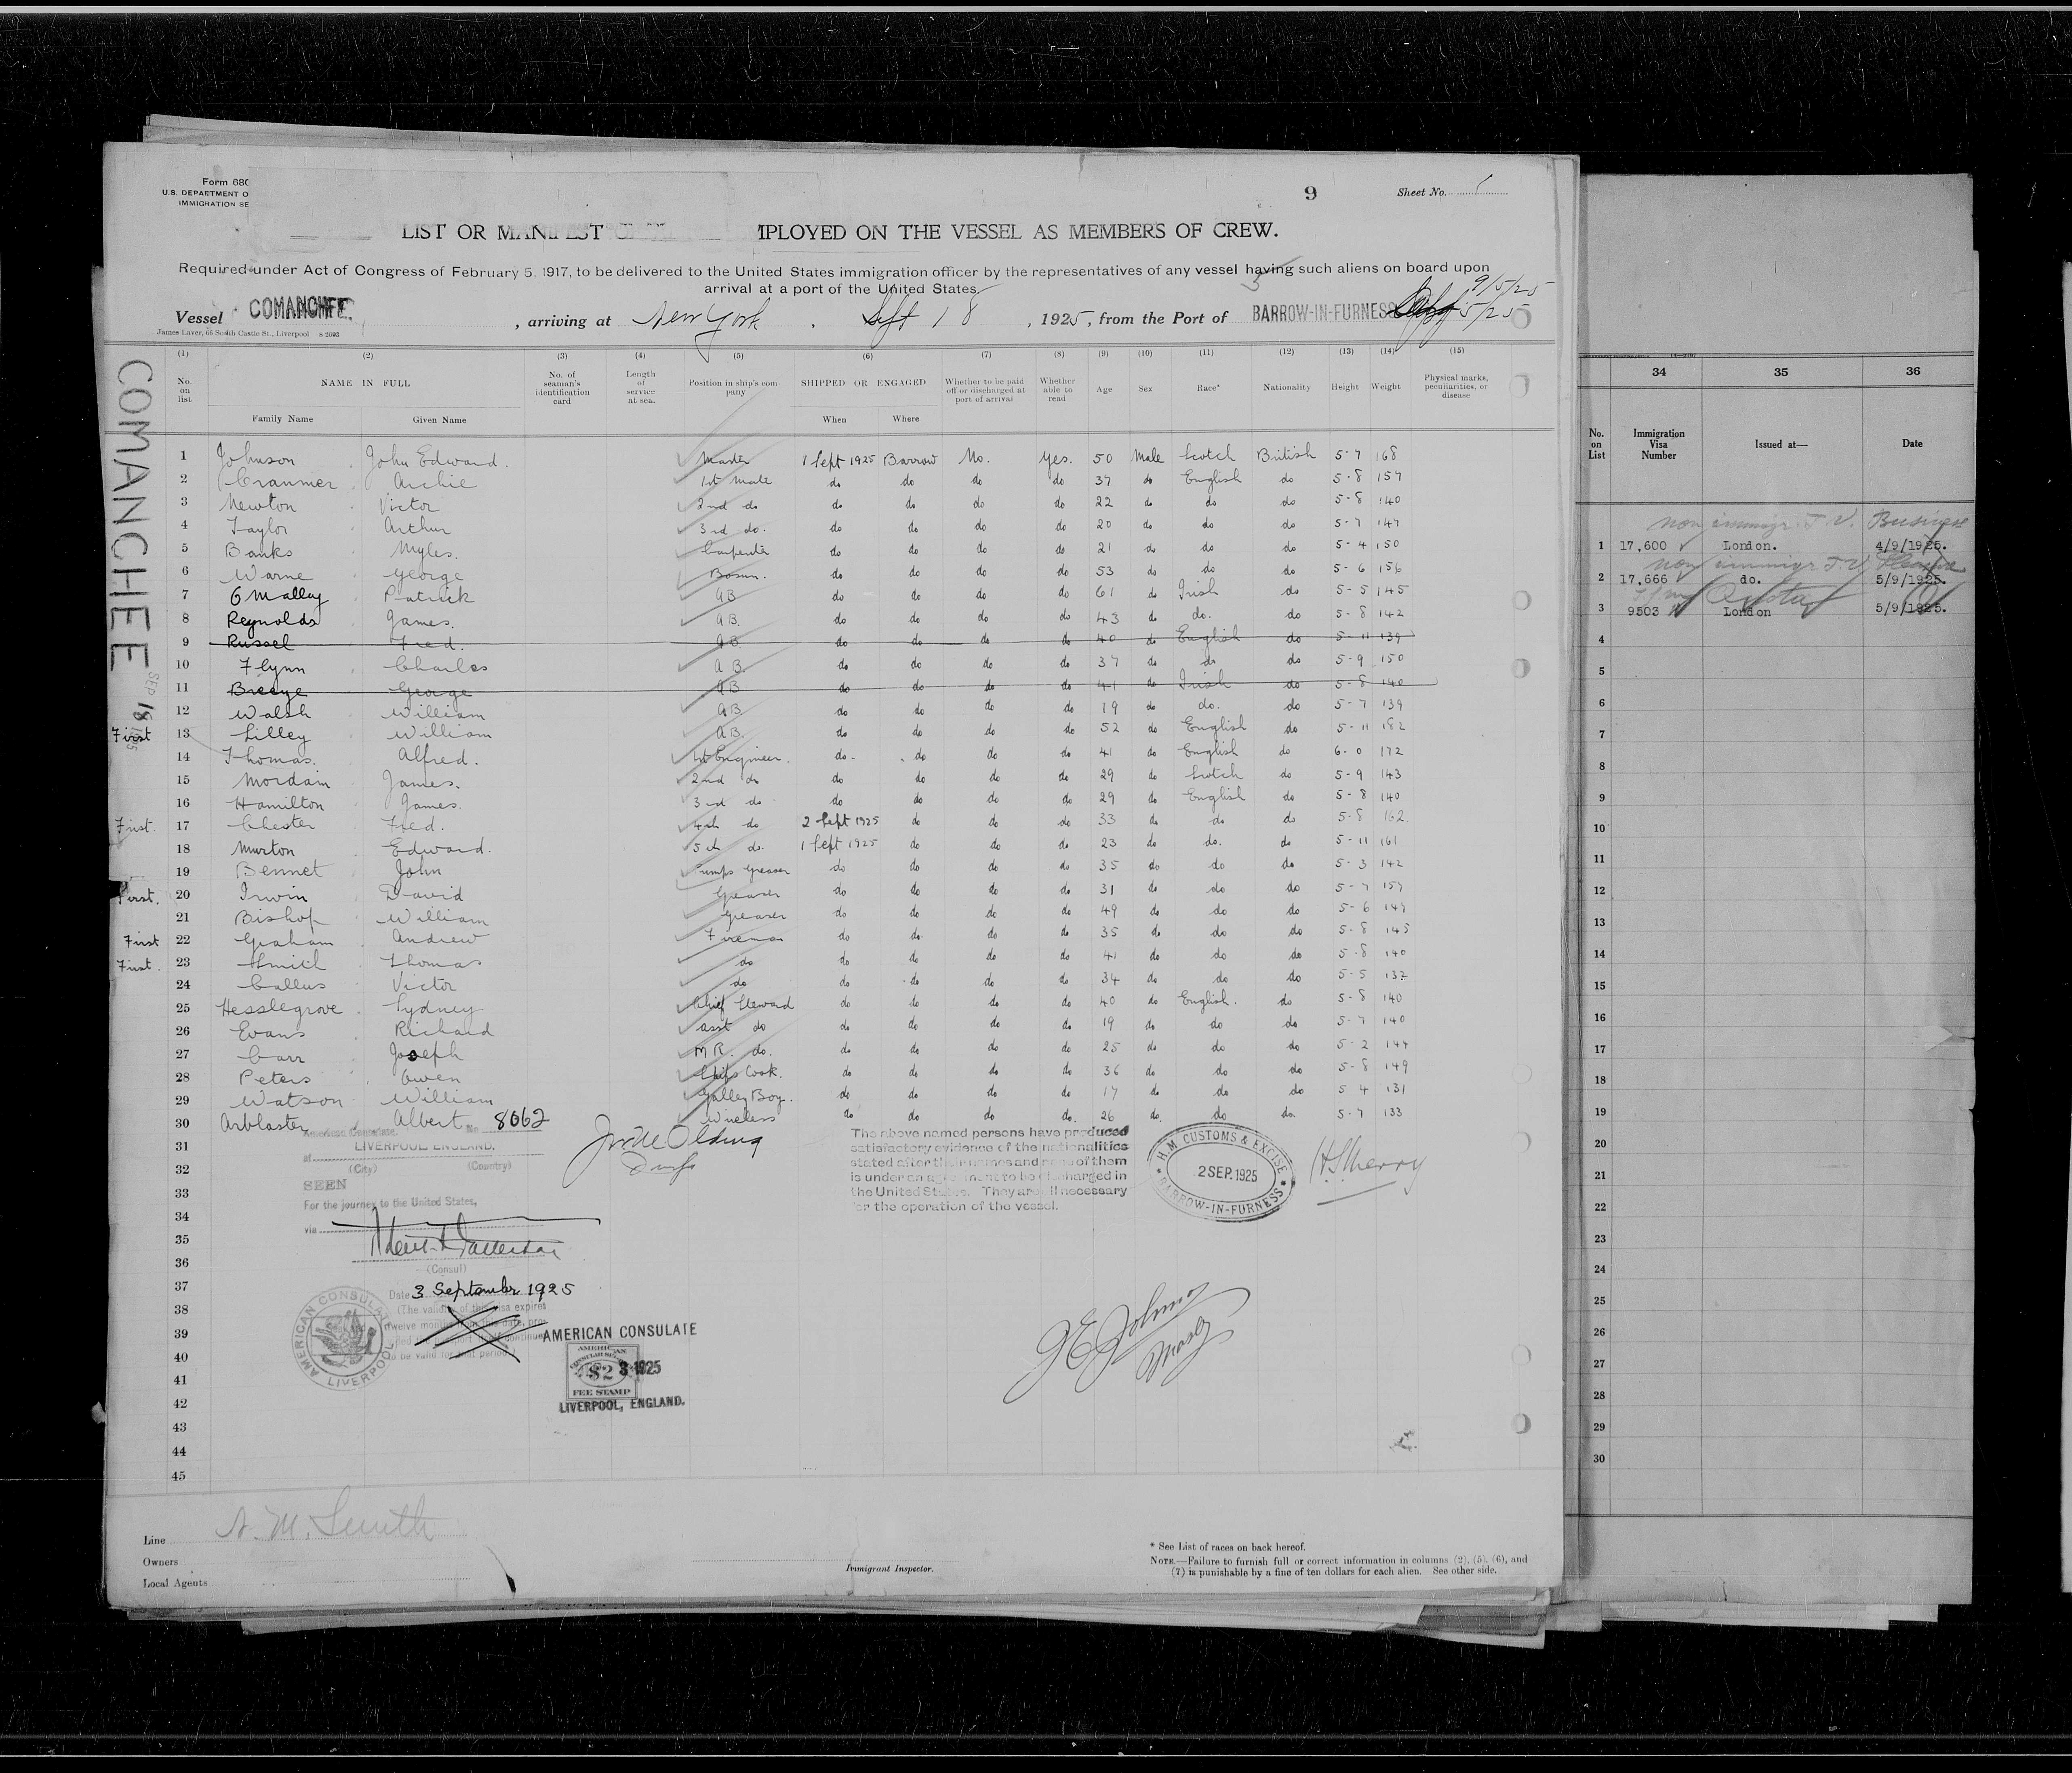 Form 680
U.S. DEPARTMENT O
IMMIGRATION SE
9
Sheet No. 1
LIST OR MANIFEST OF MPLOYED ON THE VESSEL AS MEMBERS OF CREW.
Required under Act of Congress of February 5, 1917, to be delivered to the United States immigration officer by the representatives of any vessel having such aliens on board upon
arrival at a port of the United States
9/5/25
Vessel COMANCHEE, arriving at New York, Sept 18, 1925, from the Port of BARROW-IN-FURNESS 5/25
James Laver, 66 South Castle St., Liverpool
COMANCHEE SEP 18
(1) (2) (3) (4) (5) (6) (7) (8) (9) (10) (11) (12) (13) (14) (15)
No. on list NAME IN FULL No. of seaman's identification card Length of service at sea. Position in ship's company SHIPPED OR ENGAGED Whether to be paid off or discharged at port of arrival Whether able to read Age Sex Race* Nationality Height Weight Physical marks, peculiarities, or disease
Family Name Given Name When Where
1 Johnson John Edward. Master 1 Sept 1925 Barrow No. Yes. 50 Male Scotch British 5-7 168
2 Cranmer Archie 1st Mate do do do do 37 do English do 5-8 157
3 Newton Victor 2nd do do do do do 22 do do do 5-8 140
4 Taylor Arthur 3rd do. do do do do 20 do do do 5-7 147
5 Banks Myles. Carpenter do do do do 21 do do do 5-4 150
6 Warne George Bosun. do do do do 53 do do do 5-6 156
7 O Malley Patrick AB do do do do 61 do Irish do 5-5 145
8 Reynolds James. AB. do do do do 43 do do. do 5-8 142
9 Russel Fred. AB do do do do 40 do English do 5-11 139
10 Flynn Charles AB. do do do do 37 do do do 5-9 150
11 Breeye George AB do do do do 41 do Irish do 5-8 140
12 Walsh William AB do do do do 19 do do. do 5-7 139
First 13 Lilley William AB. do do do do 52 do English do 5-11 182
14 Thomas. Alfred. 1st Engineer. do do do do 41 do English do 6-0 172
15 Mordain James. 2nd do do do do do 29 do Scotch do 5-9 143
16 Hamilton James. 3rd do do do do do 29 do English do 5-8 140
First. 17 Chester Fred. 4th do 2 Sept 1925 do do do 33 do do do 5-8 162.
18 Murton Edward. 5th do. 1 Sept 1925 do do do 23 do do. do 5-11 161
19 Bennet John Pumps Greaser do do do do 35 do do do 5-3 142
First. 20 Irwin David Greaser do do do do 31 do do do 5-7 157
21 Bishop William Greaser do do do do 49 do do do 5-6 147
First 22 Graham Andrew Fireman do do do do 35 do do do 5-8 145
First. 23 Smith Thomas do do do do do 41 do do do 5-8 140
24 Callus Victor do do do do do 34 do do do 5-5 132
25 Hesslegrove Sydney Chief Steward do do do do 40 do English. do 5-8 140
26 Evans Richard asst do do do do do 19 do do do 5-7 140
27 Carr Joseph M R. do. do do do do 25 do do do 5-2 144
28 Peters Owen Ships Cook. do do do do 36 do do do 5-8 149
29 Watson William Galley Boy. do do do do 17 do do do 5 4 131
30 Arblaster Albert Wireless do do do do 26 do do do. 5-7 133
31
32
33
34
35
36
37
38
39
40
41
42
43
44
45
American Consulate. No 8062
at LIVERPOOL ENGLAND.
(City) (Country)
SEEN
For the journey to the United States,
via
(Consul)
Date 3 September 1925
(The validity of this visa expires
twelve months from this date, pro-
be valid for that period
AMERICAN CONSULATE LIVERPOOL
AMERICAN CONSULATE
AMERICAN
CONSULAR SERVICE
$2 3 1925
FEE STAMP
LIVERPOOL, ENGLAND.
The above named persons have produced
satisfactory evidence of the nationalities
stated after their names and none of them
is under an agreement to be discharged in
the United States. They are all necessary
for the operation of the vessel.
H.M. CUSTOMS & EXCISE
2 SEP. 1925
BARROW-IN-FURNESS
H.S. Merry
J E Johnson
Master
Line
A. M. Smith
Owners
Local Agents
Immigrant Inspector.
* See List of races on back hereof.
NOTE.—Failure to furnish full or correct information in columns (2), (5), (6), and
(7) is punishable by a fine of ten dollars for each alien. See other side.
34 35 36
No. on List Immigration Visa Number Issued at— Date
non immigr. T.V. Business
1 17,600 London. 4/9/1925.
non immigr T.V. Pleasure
2 17,666 do. 5/9/1925.
Quota
3 9503 London 5/9/1925.
4
5
6
7
8
9
10
11
12
13
14
15
16
17
18
19
20
21
22
23
24
25
26
27
28
29
30